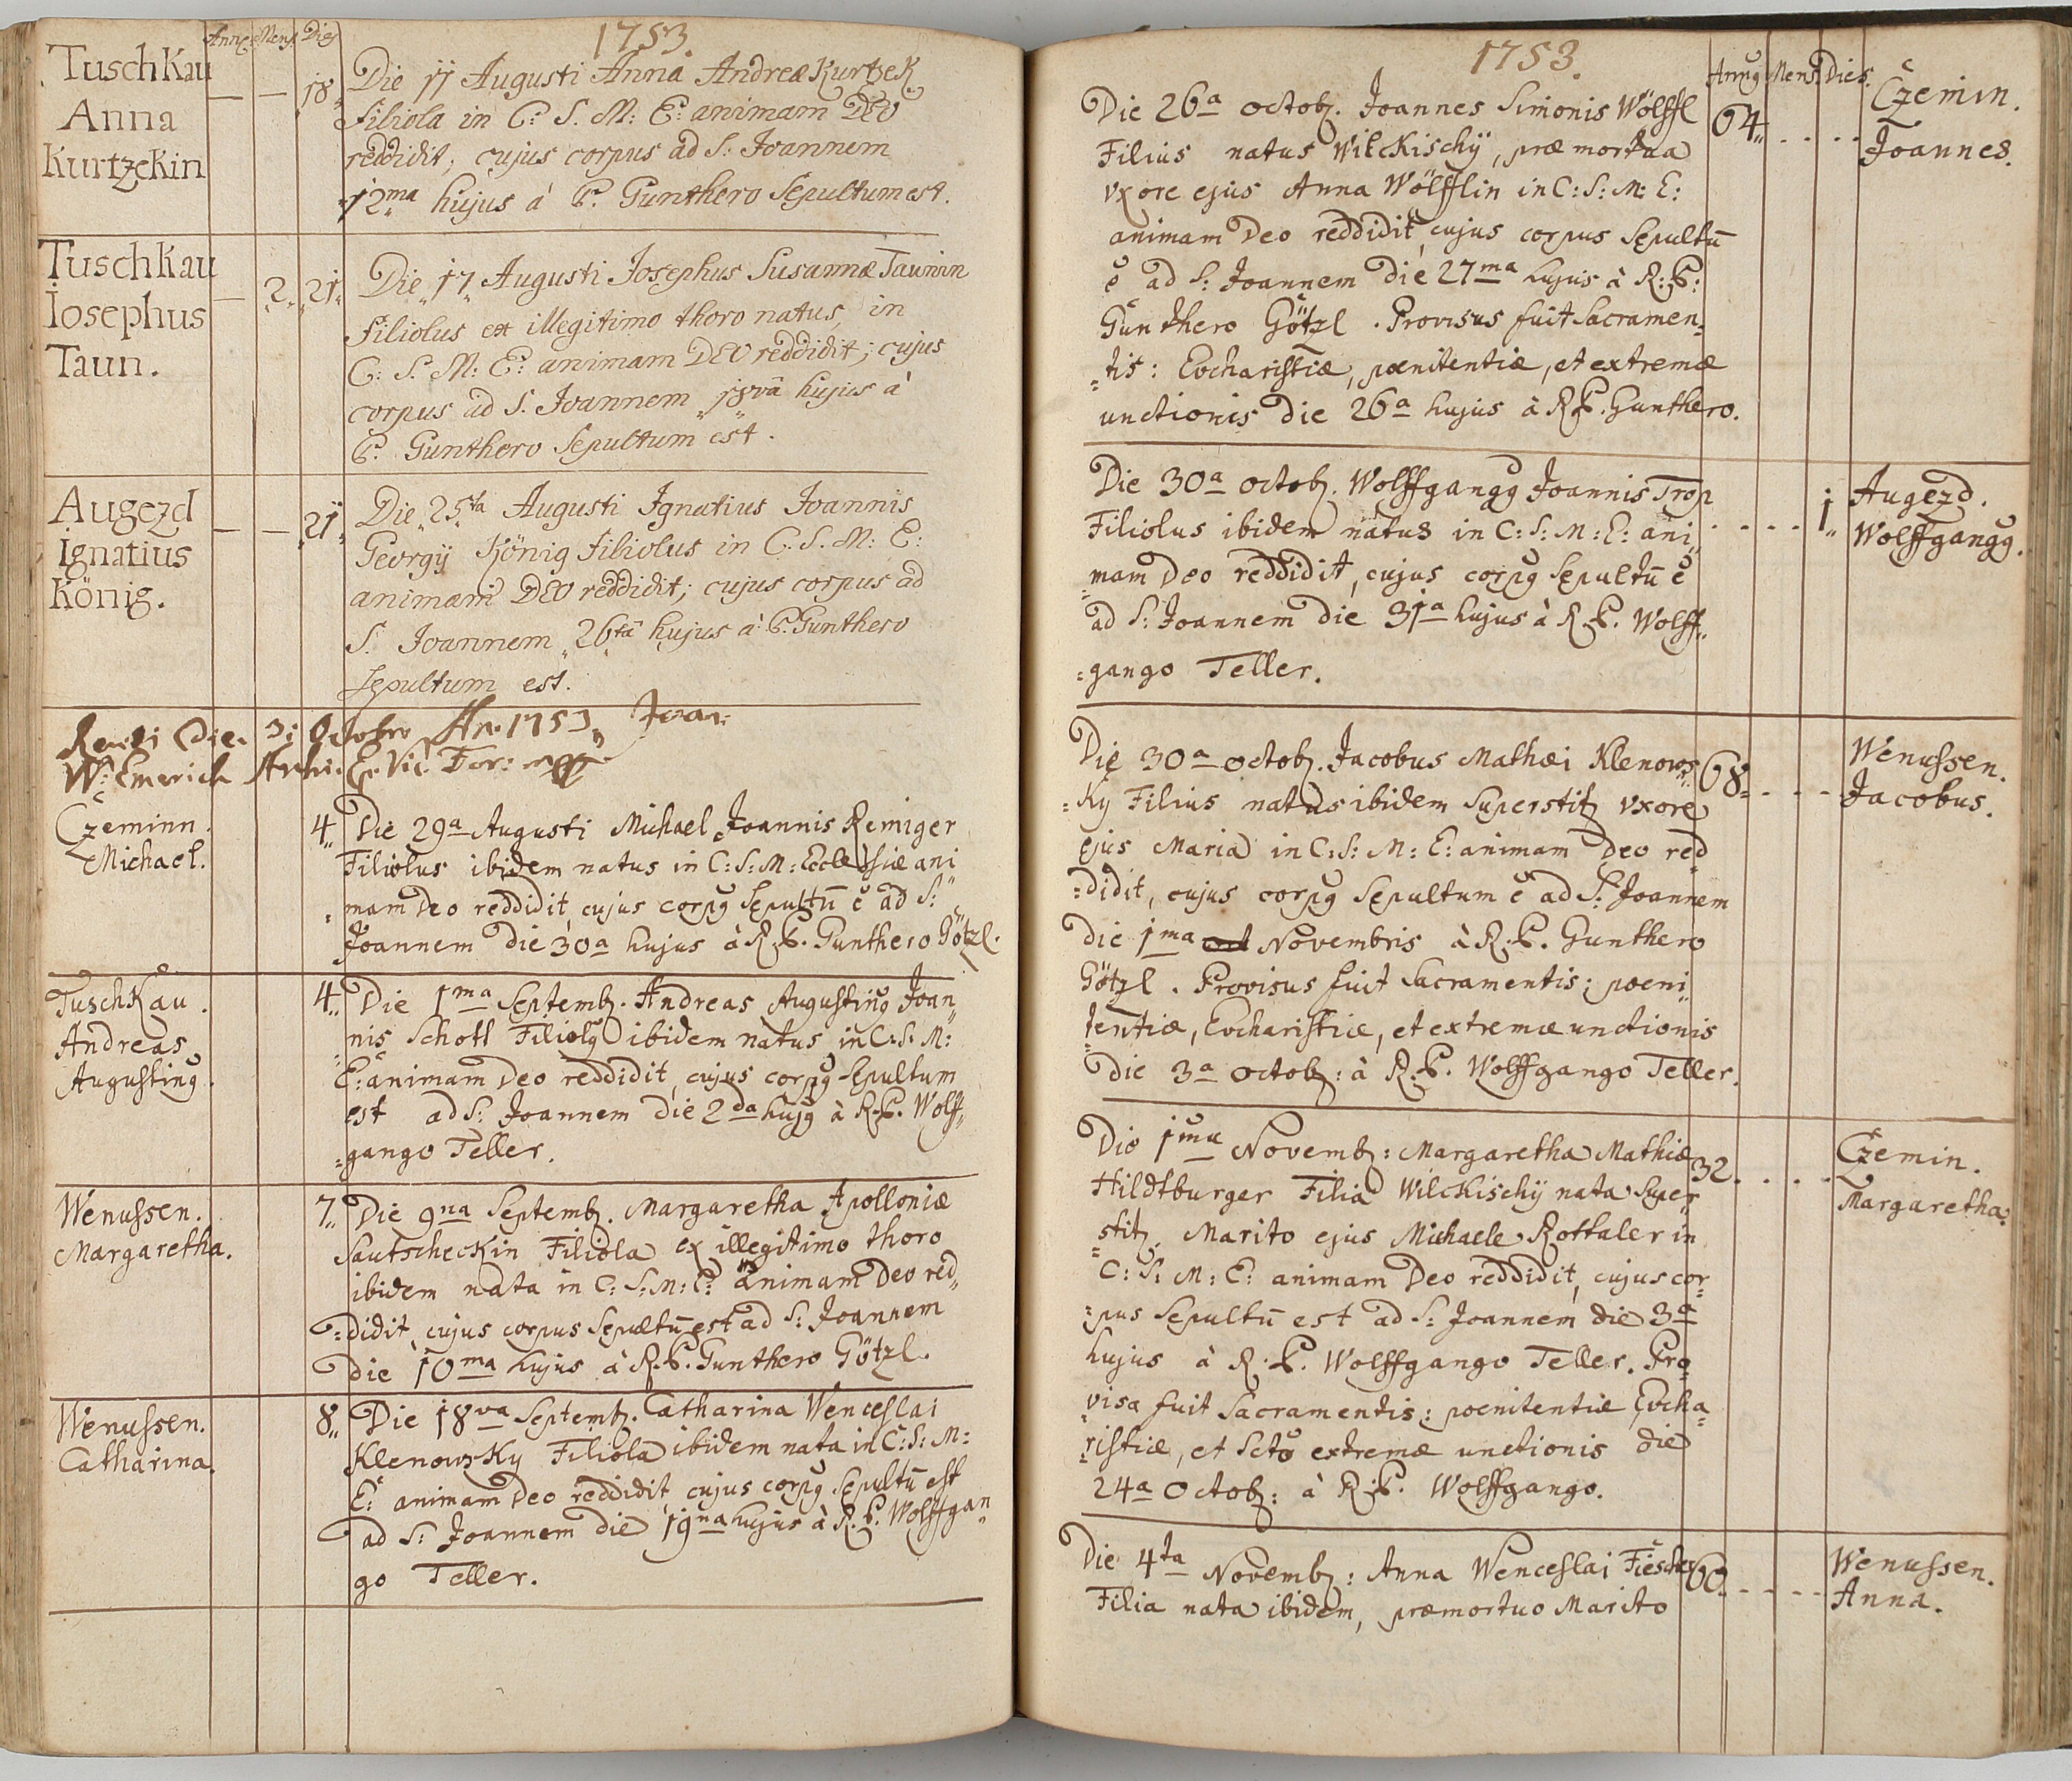 Annq. Mens. Dies
1753.
TuschKau
Anna
KurtzeKin
— — 18.
Die 11 Augusti Anna Andreæ KurtzeK
Filiola in C: S. M: E: animam DEO
reddidit; cujus corpus ad S: Joannem
12ma hujus à P. Gunthero Sepultum est.
TuschKau
Iosephus
Taun.
— 2. 21.
Die 17 Augusti Josephus Susannæ Taunin
Filiolus ex illegitimo thoro natus, in
C: S. M: E: animam DEO reddidit; cujus
corpus ad S. Joannem 18vâ hujus à
P. Gunthero Sepultum est.
Augezd
Ignatius
König.
— — 21.
Die 25ta Augusti Ignatius Joannis
Georgÿ König Filiolus in C. S. M: E:
animam DEO reddidit; cujus corpus ad
S. Joannem 26tâ hujus à P. Gunthero
Sepultum est.
Die 31 Octobr. An. 1753 Joan:
W: Emerich Archi. & Vic. For: mpp
Czeminn.
Michael.
4.
Die 29a Augusti Michael Joannis Remiger
Filiolus ibidem natus in C: S: M: Ecclesiæ ani
=mam Deo reddidit, cujus corpq Sepultū ē ad S:
Joannem die 30a hujus à R. P. Gunthero Götzl.
TuschKau.
Andreas
Augustinq.
4.
Die 1ma Septemb. Andreas Augustinq Joan
nis Schott Filiolq ibidem natus in C: S: M:
E: animam Deo reddidit, cujus corpq Sepultum
est ad S: Joannem die 2da hujq à R. P. Wolff=
=gango Teller.
Wenussen.
Margaretha.
7.
Die 9na Septemb. Margaretha Apolloniæ
SautschecKin Filiola ex illegitimo thoro
ibidem nata in C: S: M: E: animam Deo red=
=didit, cujus corpus Sepultū est ad S: Joannem
die 10ma hujus à R. P. Gunthero Götzl.
Wenussen.
Catharina.
8.
Die 18va Septemb. Catharina Wenceslai
KlenowsKy Filiola ibidem nata in C: S: M:
E: animam Deo reddidit, cujus corpq Sepultū est
ad S: Joannem die 19na hujus à R. P. Wolffgan
go Teller.
1753.
Annq Mens. Dies.
Die 26a octob. Joannes Simonis Wölffl
Filius natus WilcKischÿ, præmortua
Vxore ejus Anna Wölfflin in C: S: M: E:
animam Deo reddidit, cujus corpus Sepultū
ē ad S: Joannem die 27ma hujus à R: P:
Gunthero Götzl. Provisus fuit Sacramen=
=tis: Eucharistiæ, pœnitentiæ, et extremæ
unctionis die 26a hujus à R. P. Gunthero.
64. . . . .
Czemin.
Joannes.
Die 30a octob. Wolffgangq Joannis Trop
Filiolus ibidem natus in C: S: M: E: ani
=mam Deo reddidit, cujus corpq Sepultū ē
ad S: Joannem die 31a hujus à R. P. Wolff=
=gango Teller.
. . . . 1.
Augezd.
Wolffgangq.
Die 30a octob. Jacobus Mathæi Klenows
=Ky Filius natus ibidem Superstite Vxore
ejus Maria in C: S: M: E: animam Deo red
=didit, cujus corpq Sepultum ē ad S: Joannem
die 1ma oct Novembris à R. P. Gunthero
Götzl. Provisus fuit Sacramentis: pœni
tentiæ, Eucharistiæ, et extremæ unctionis
die 3a octob: à R. P. Wolffgango Teller.
68. . . . .
Wenussen.
Jacobus.
Die 1ma Novemb: Margaretha Mathiæ
Hildtburger Filia WilcKischÿ nata Super
=stite. Marito ejus Michaele Rottaler in
C: S: M: E: animam Deo reddidit, cujus cor=
=pus Sepultū est ad S: Joannem die 3a
hujus à R. P. Wolffgango Teller. Pro
visa fuit Sacramentis: pœnitentiæ Eucha=
ristiæ, et extremæ unctionis die
24a Octob: à R. P. Wolffgango.
32. . . . .
Czemin.
Margaretha.
Die 4ta Novemb: Anna Wenceslai Fiescher
Filia nata ibidem, præmortuo Marito
60. . . . .
Wenussen.
Anna.